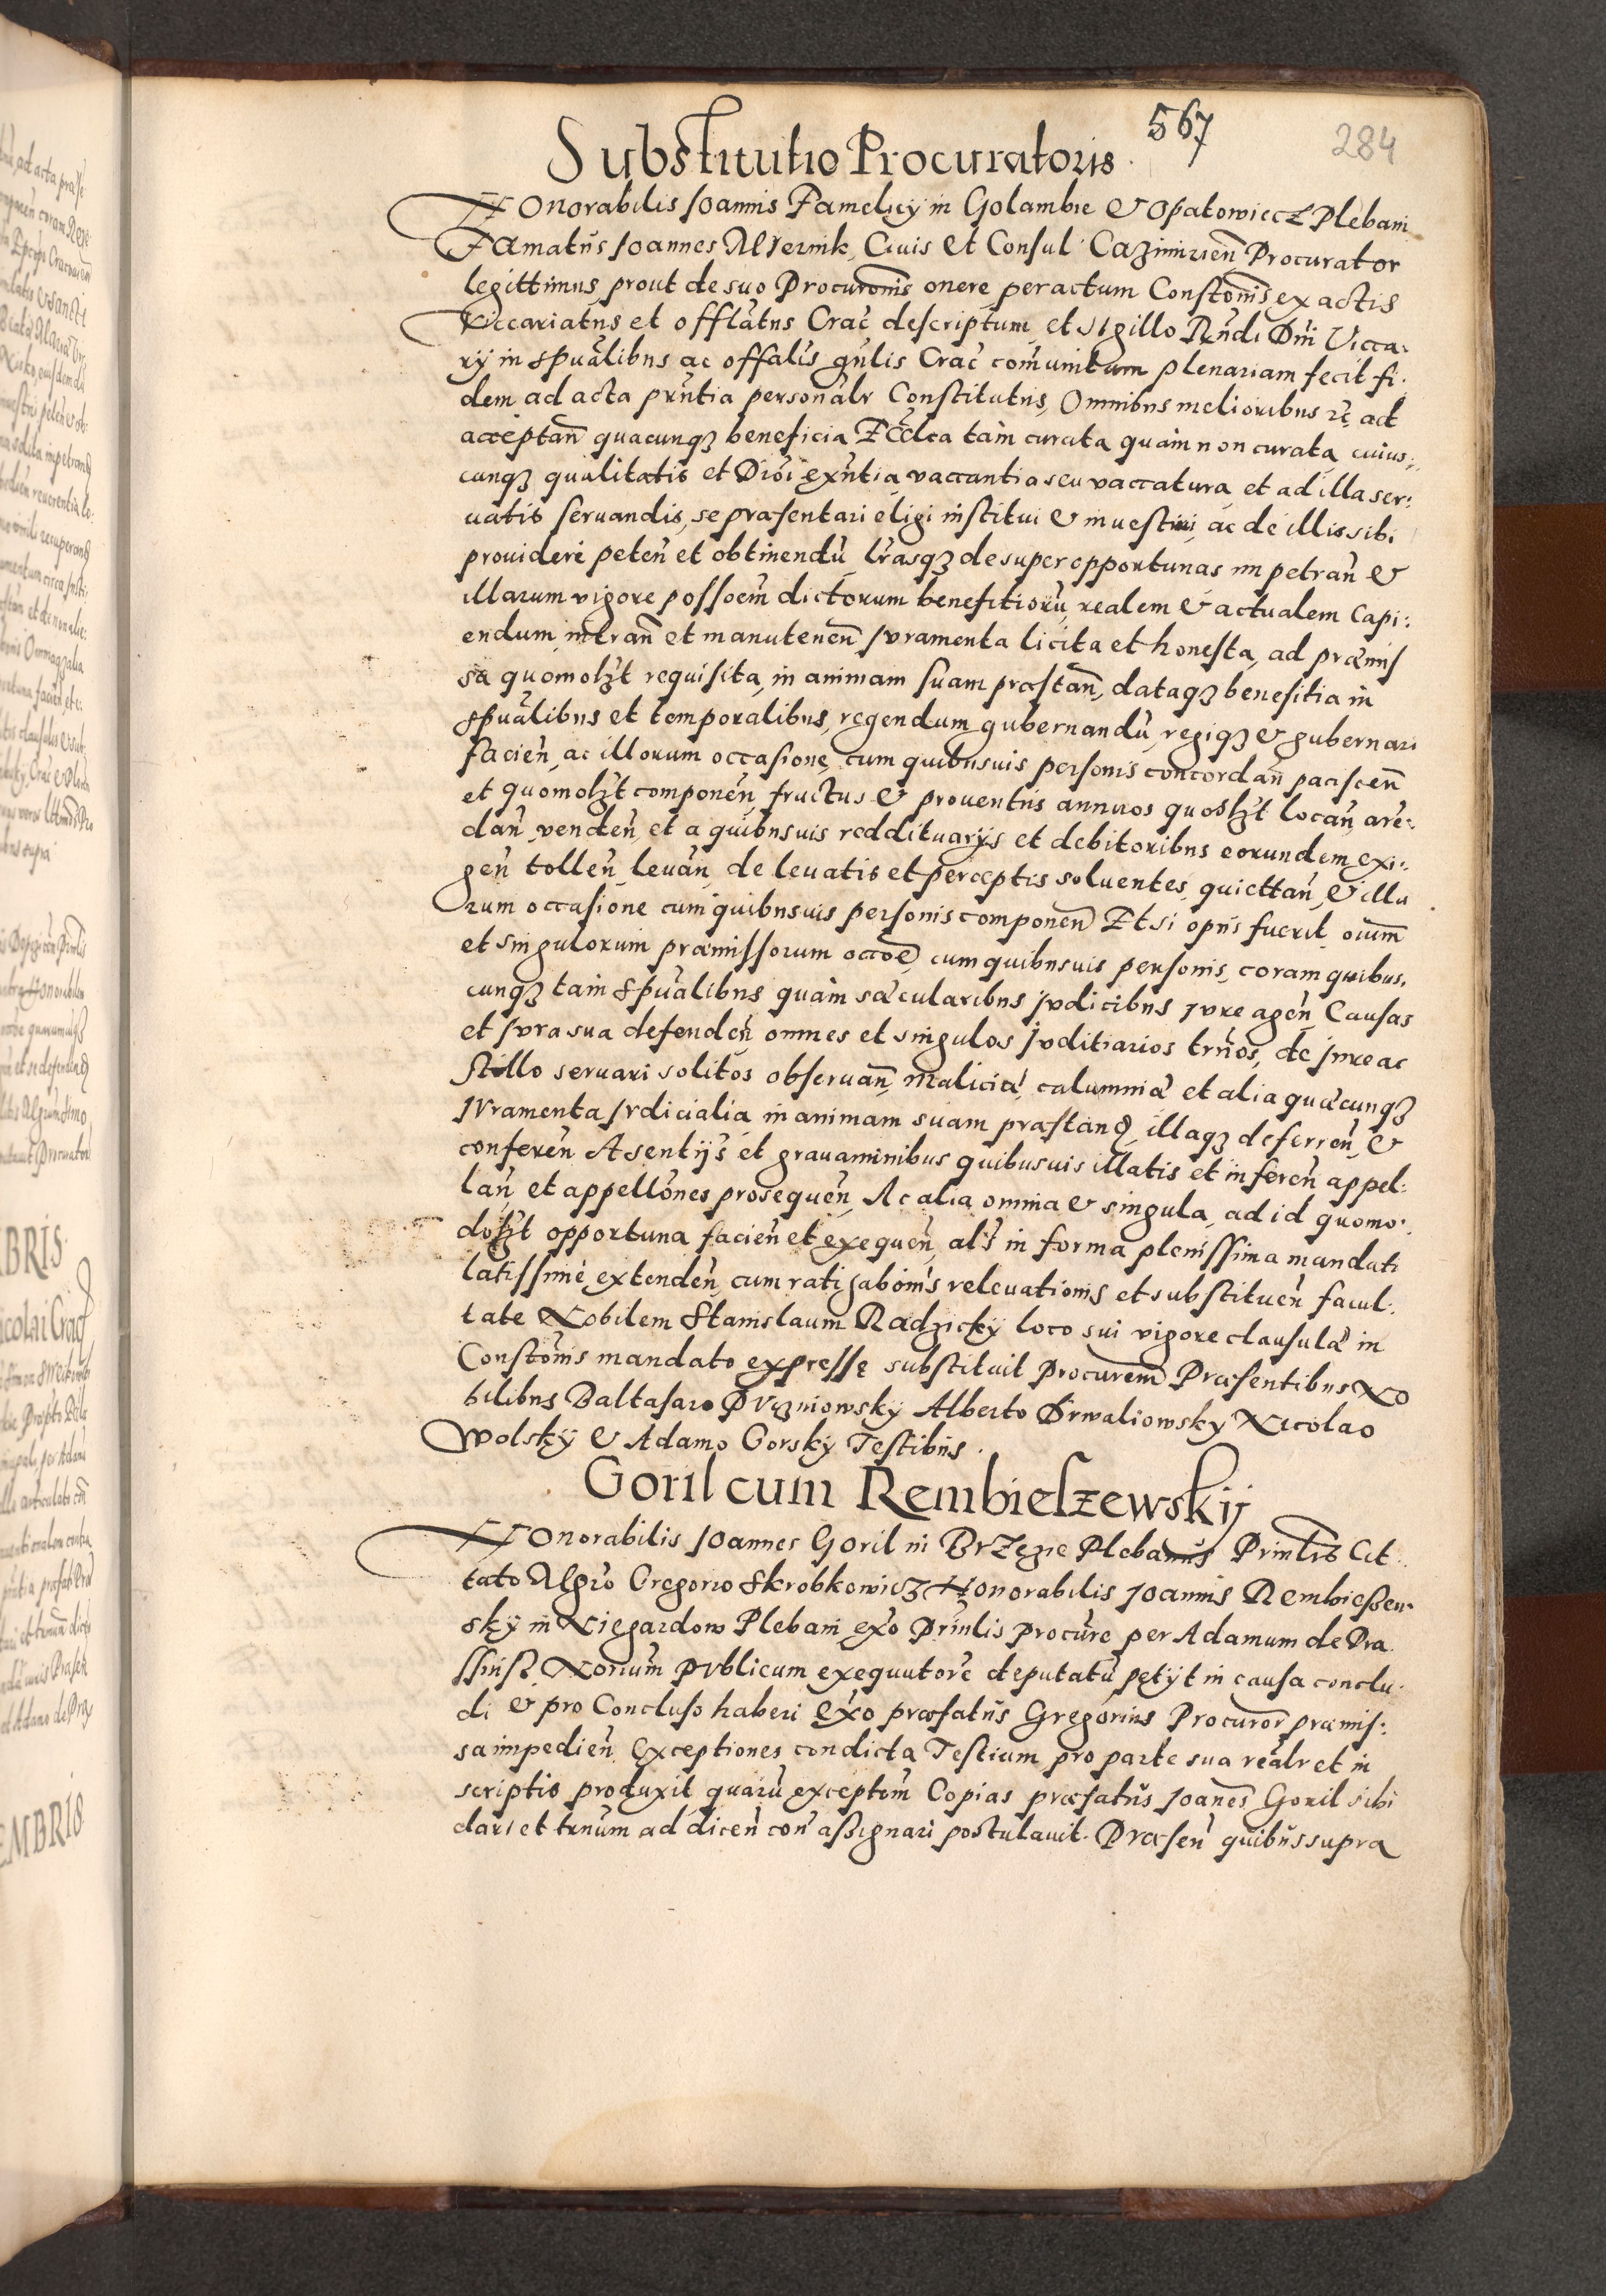 567
284
Substitutio Procuratoris.
Honorabilis Joannis Famelicy in Golambie & Opatowiecz Plebani
Famatus Joannes Civis et Consul Cazimirien̄ Procurator
legittimus, prout de suo Procuronis onere, per actum Constonis ex actis
Viccariatus et offlatus Crac̄ descriptum, et sigillo Rn̄di Dn̄i Vicca:
rij in spūalibus ac offalis gn̄lis Crac̄ com̄unitum plenariam fecit fi:
dem ad acta prn̄tia personalr Constitutus, Omnibus melioribus rē ad
acceptan̄ quacunqꝫ beneficia Eccl̄ca tam curata quam non curata, cuius:
cunqꝫ qualitatis et Dioi exn̄tia vaccantia seu vaccatura, et ad illa ser:
uatis seruandis, se præsentari eligi institui & inuestiri, ac de illis sibi
prouideri peten̄ et obtinendū, lr̄asqꝫ desuper opportunas impetran̄ &
illarum vigore possoem̄ dictorum benefitiorū, realem & actualem Capi:
endum, intran̄ et manutenen̄ Juramenta licita et honesta, ad præmis
sa quomolꝫt requisita, in animam suam præstan̄, dataqꝫ benefitia in
spūalibus et temporalibus, regendum gubernandū, regiqꝫ & gubernari
facien̄, ac illorum occasione, cum quibusuis personis concordan̄ paciscen̄
et quomolꝫt componen̄, fructus & prouentus annuos quoslꝫt locan̄, are:
dan̄, venden̄, et a quibusuis reddituarijs et debitoribus eorundem, exi:
gen̄ tollen̄, leuan̄, de leuatis et perceptis soluentes, quiettan̄, & illa
rum occasione cum quibusuis personis componen̄ Et si opus fuerit, oium̄
et singulorum præmissorum occoē, cum quibusuis personis, coram quibus,
cunqꝫ tam spūalibus quam sæcularibus Judicibus Jure agen̄, Causas
et Jura sua defenden̄ omnes et singulos Juditiarios trn̄os, de Jure ac
stillo seruari solitos obseruan̄, maliciæ, calumniæ et alia quæcunqꝫ
Juramenta Judicialia in animam suam præstand, illaqꝫ deferren̄, &
conferen̄ A sentijs et grauaminibus quibusuis illatis et inferen̄ appel:
lan̄, et appellōnes prosequen̄, Ac alia omnia & singula, ad id quomo:
dolꝫt opportuna facien̄ et exequen̄, als in forma plenissima mandati
latissime, extenden̄, cum ratihabōnis releuationis et substituen̄ facul:
tate Nobilem Stanislaum Radzicky loco sui vigore clausulæ in
Constōnis mandato expressę substituit Procurem̄ Præsentibus No
bilibus Baltasaro Pruzniowsky Alberto Drwaliowsky Nicolao
Wolsky & Adamo Gorsky Testibus.
Goril cum Rembielzewskij
Honorabilis Joannes Goril in Brzezie Plebanus Prin̄lis Cit
tato Algro Gregorio Skrobkowicz Honorabilis Joannis Rembießew
sky in Niegardow Plebani exo Prin̄lis Procure per Adamum de Dra
Norium publicum exequutore deputatū petijt in causa conclu:
di & pro Concluso haberi Exo præfatus Gregorius Procuror præmis:
sa impedien̄. Exceptiones con dicta Testium pro parte sua realr et in
scriptis produxit quarū exceptom̄ Copias præfatus Joannes Goril sibi
dari et trn̄um ad dicen̄ con̄ assignari postulauit. Præsen̄ quibus supra